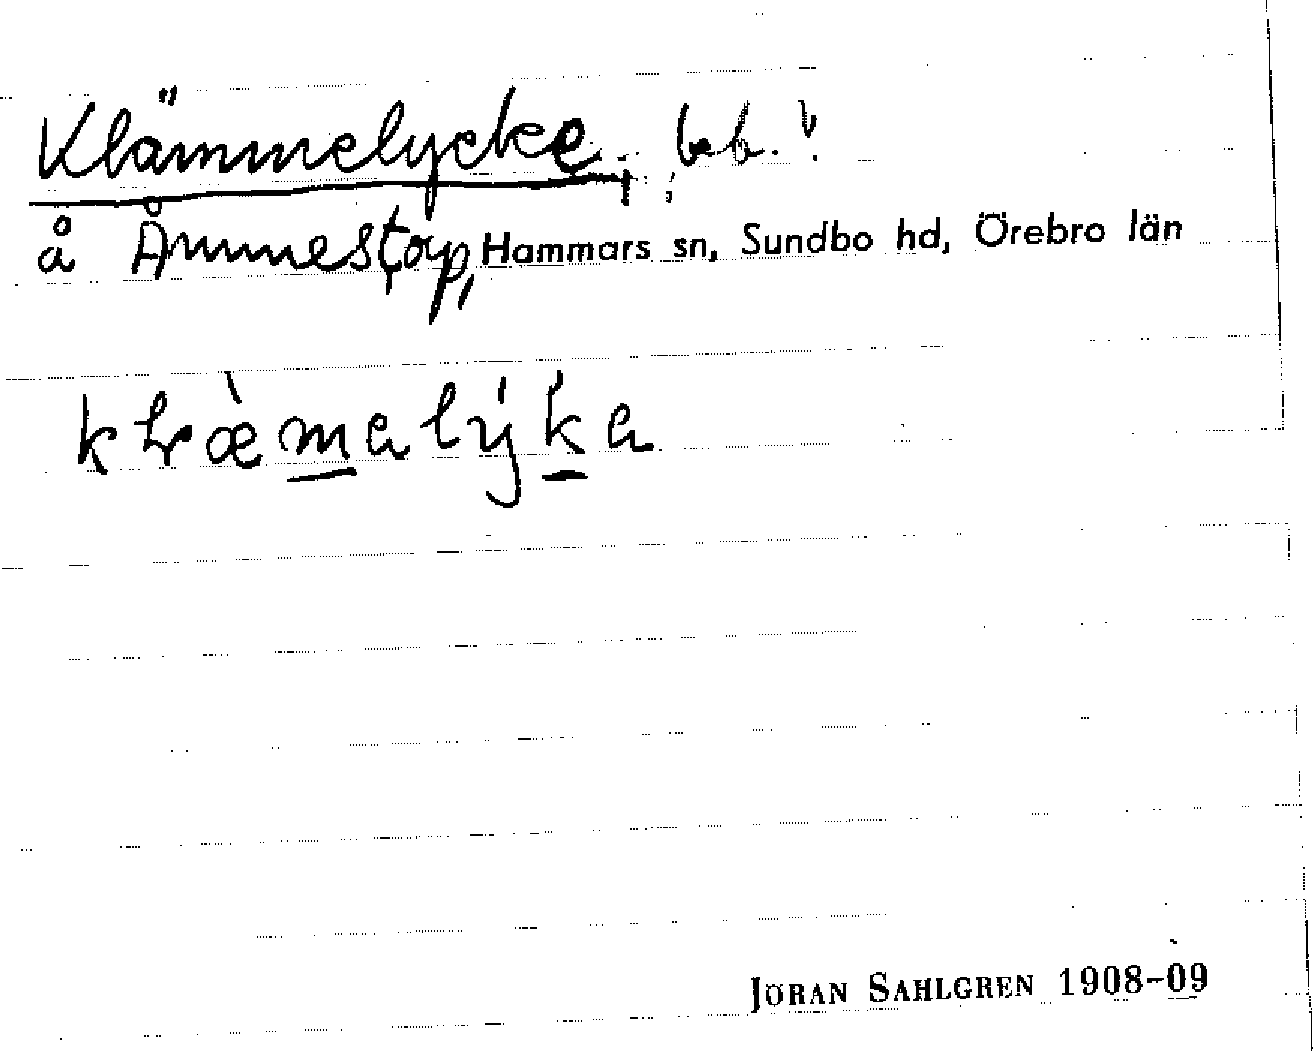 Klämmelycke, beb.!
å Åmmestorp, Hammars sn, Sundbo hd, Örebro län
klæ̀malýka
JÖRAN SAHLGREN 1908-09